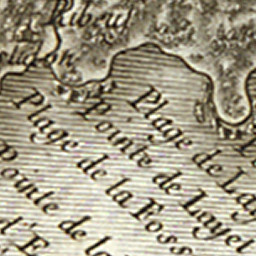 Ribeuf
Plage de La
Pointe de Layet
Plage de la Foss
Pointe de la